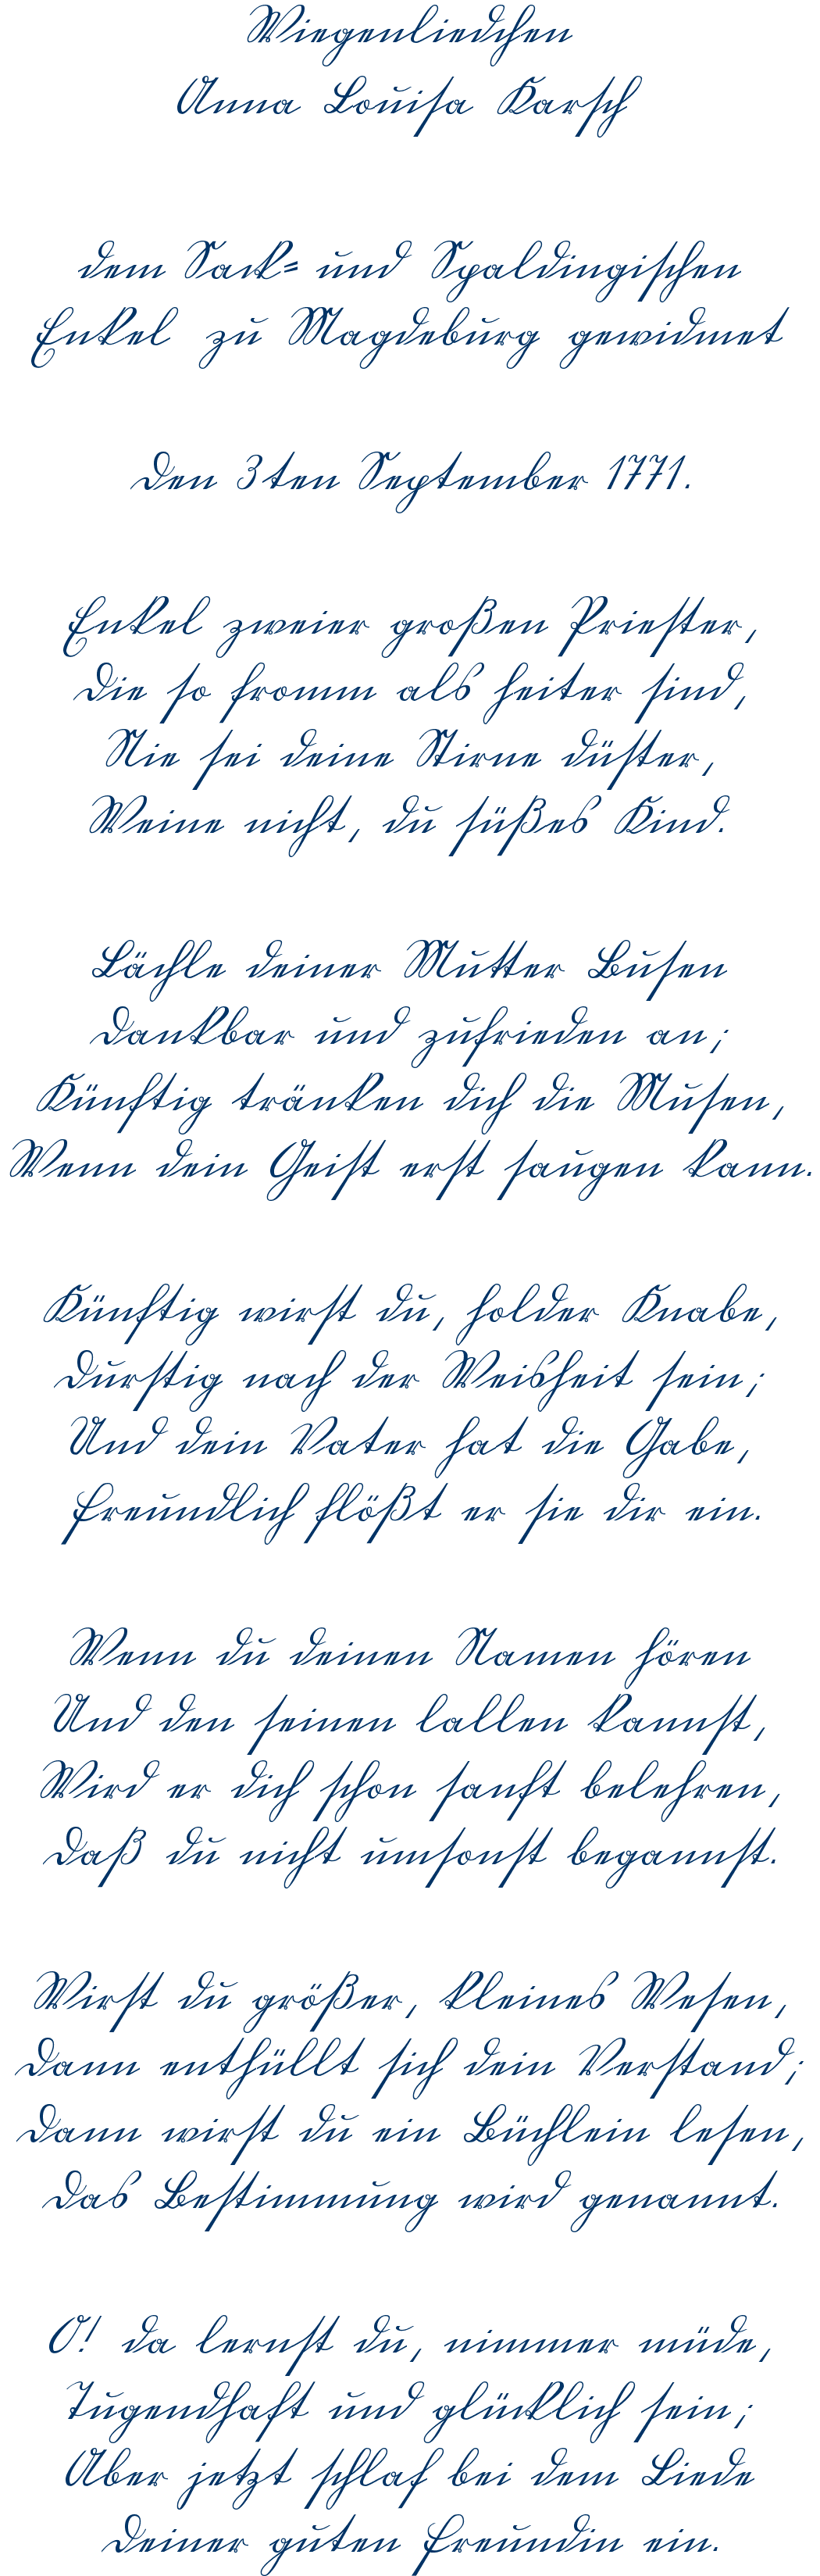 Wiegenliedchen
Anna Louisa Karsch
dem Sack= und Spaldingischen
Enkel zu Magdeburg gewidmet
Den 3ten September 1771.
Enkel zweier großen Priester,
Die so fromm als heiter sind,
Nie sei deine Stirne düster,
Weine nicht, du süßes Kind.
Lächle deiner Mutter Busen
Dankbar und zufrieden an;
Künftig tränken dich die Musen,
Wenn dein Geist erst saugen kann.
Künftig wirst du, holder Knabe,
Durstig nach der Weisheit sein;
Und dein Vater hat die Gabe,
Freundlich flößt er sie dir ein.
Wenn du deinen Namen hören
Und den seinen lallen kannst,
Wird er dich schon sanft belehren,
Daß du nicht umsonst begannst.
Wirst du größer, kleines Wesen,
Dann enthüllt sich dein Verstand;
Dann wirst du ein Büchlein lesen,
Das Bestimmung wird genannt.
O! da lernst du, nimmer müde,
Tugendhaft und glücklich sein;
Aber jetzt schlaf bei dem Liede
Deiner guten Freundin ein.